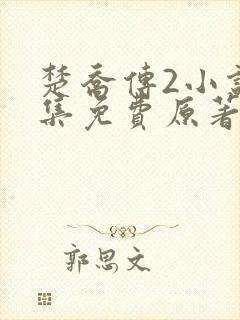 楚喬傳2小說
集免費原著
郭思文